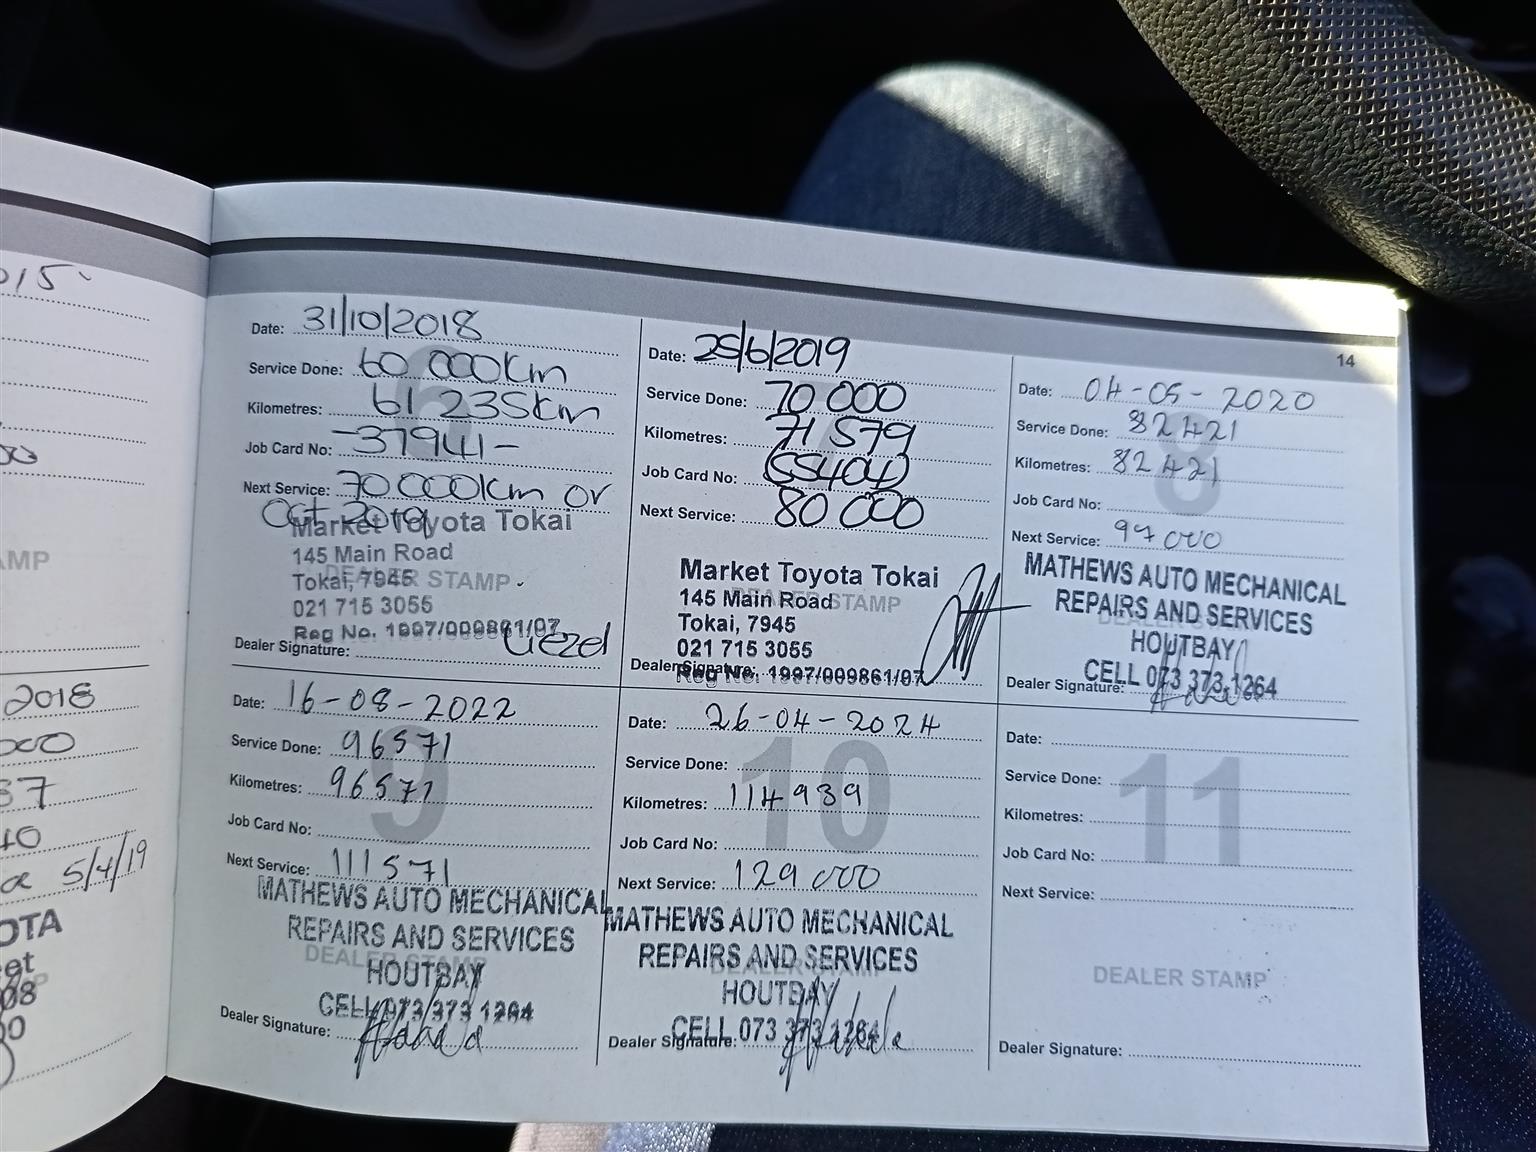 015
2018
000
37
40
5/4/19
OTA
14
Date: 31/10/2018
Service Done: 60 000km
Kilometres: 61 235km
Job Card No: -37941-
Next Service: 70 000km or
Oct 2019
Market Toyota Tokai
145 Main Road
Tokai, 7945
DEALER STAMP
021 715 3055
Reg No. 1997/009861/07
Dealer Signature:
Date: 25/6/2019
Service Done: 70 000
Kilometres: 71 579
Job Card No: (55404)
Next Service: 80 000
Market Toyota Tokai
145 Main Road
DEALER STAMP
Tokai, 7945
021 715 3055
Reg No. 1997/009861/07
Dealer Signature:
8
Date: 04-05-2020
Service Done: 82421
Kilometres: 82421
Job Card No:
Next Service: 97000
MATHEWS AUTO MECHANICAL
REPAIRS AND SERVICES
HOUTBAY
CELL 073 373 1264
Dealer Signature:
9
Date: 16-08-2022
Service Done: 96571
Kilometres: 96571
Job Card No:
Next Service: 111571
MATHEWS AUTO MECHANICAL
REPAIRS AND SERVICES
DEALER STAMP
HOUTBAY
CELL 073 373 1264
Dealer Signature:
10
Date: 26-04-2024
Service Done:
Kilometres: 114939
Job Card No:
Next Service: 129000
MATHEWS AUTO MECHANICAL
REPAIRS AND SERVICES
HOUTBAY
CELL 073 373 1264
Dealer Signature:
11
Date:
Service Done:
Kilometres:
Job Card No:
Next Service:
DEALER STAMP
Dealer Signature: